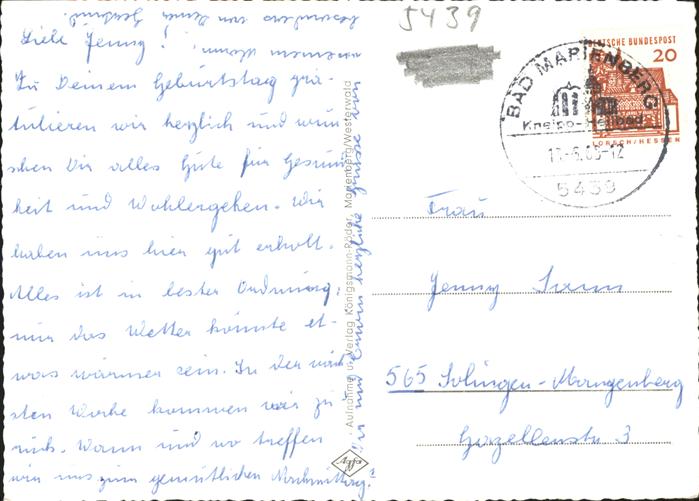 5439
Liebe Jenny!
Zu Deinem Geburtstag gra-
tulieren wir herzlich und wün
schen Dir alles Gute für Gesund
heit und Wohlergehen. Wir
haben uns hier gut erholt.
Alles ist in bester Ordnung,
nur das Wetter könnte et-
was wärmer sein. In der näch
sten Woche kommen wir zu
rück. Wann und wo treffen
wir uns zum gemütlichen Nachmittag?
herzliche Grüsse von
Aufnahme u. Verlag Königsmann-Röder, Marienberg/Westerwald
Agfa
DEUTSCHE BUNDESPOST
20
LORSCH/HESSEN
BAD MARIENBERG
Kneipp-Heilbad
5439
Frau
Jenny
565 Solingen-Mangenberg
Gazellenstr. 3